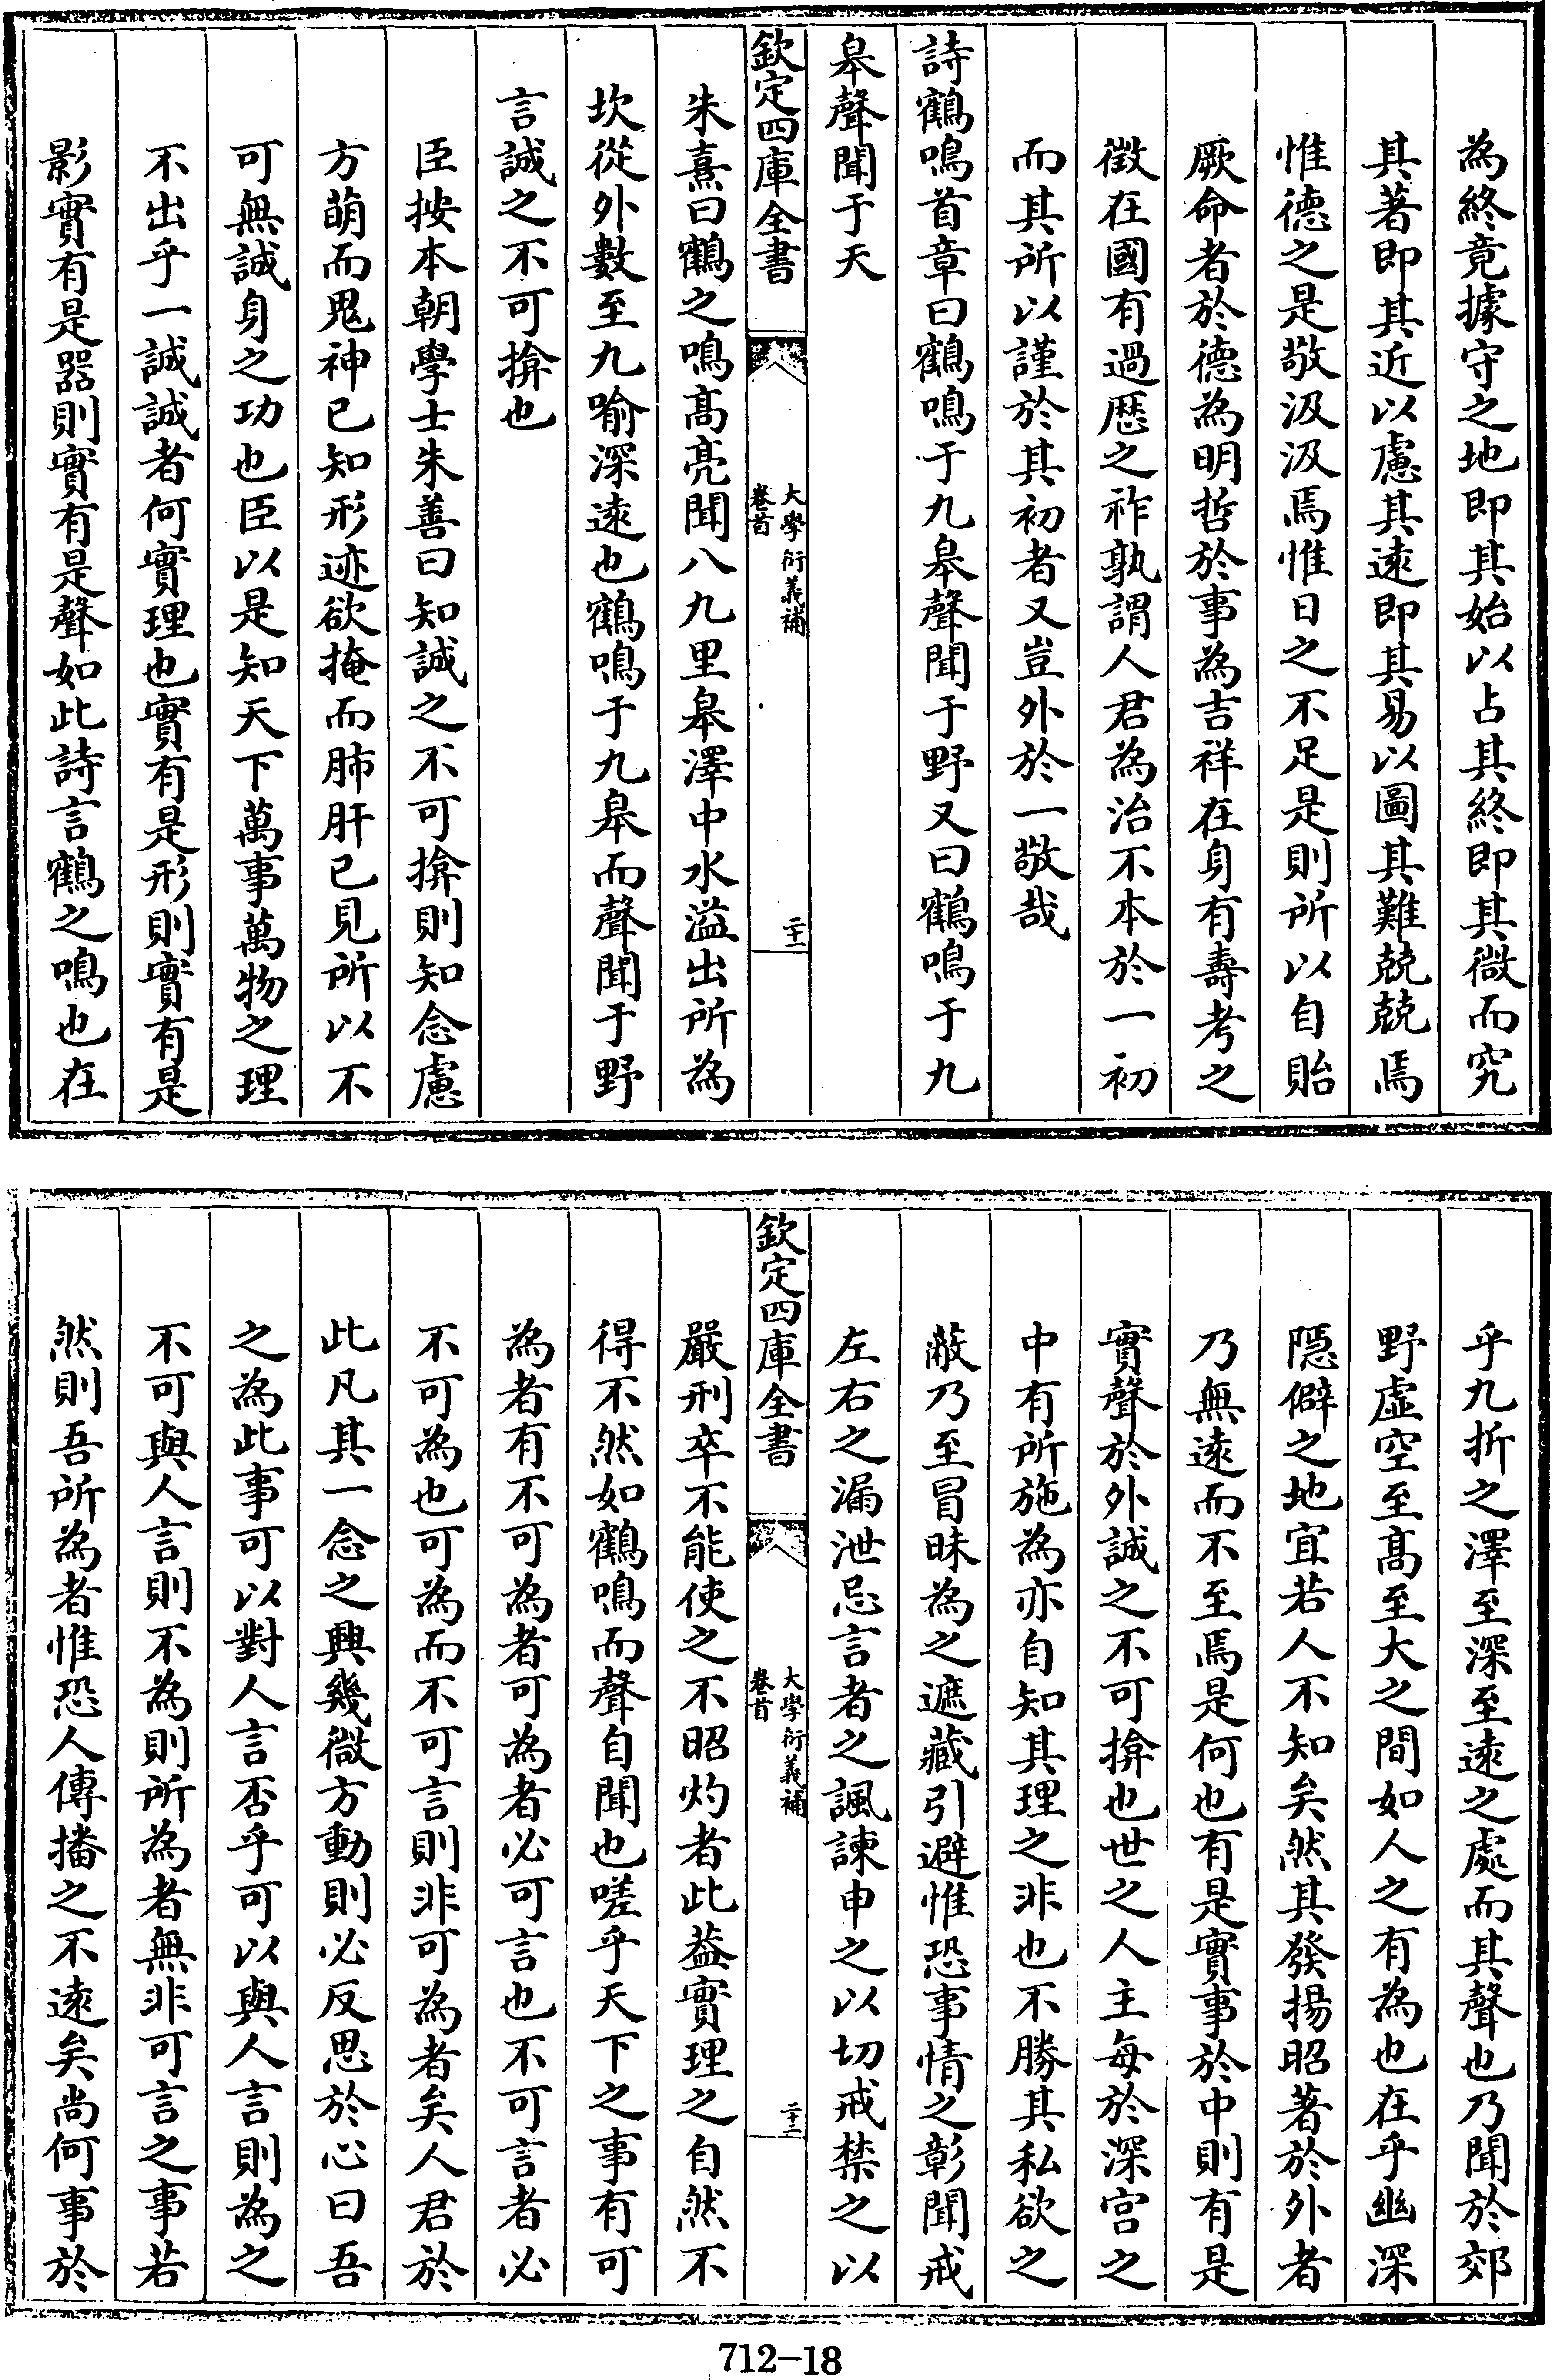 為終竟據守之地即其始以占其終即其微而究
其著即其近以慮其遠即其易以圖其難兢兢焉
惟德之是敬汲汲焉惟日之不足是則所以自貽
厥命者於德為明哲於事為吉祥在身有壽考之
徵在國有過歷之祚孰謂人君為治不本於一初
而其所以謹於其初者又豈外於一敬哉
詩鶴鳴首章曰鶴鳴于九皋聲聞于野又曰鶴鳴于九
皋聲聞于天
欽定四庫全書
大學衍義補
卷首
二十一
朱熹曰鶴之鳴高亮聞八九里皋澤中水溢出所為
坎從外數至九喻深遠也鶴鳴于九皋而聲聞于野
言誠之不可揜也
臣按本朝學士朱善曰知誠之不可揜則知念慮
方萌而鬼神已知形迹欲掩而肺肝已見所以不
可無誠身之功也臣以是知天下萬事萬物之理
不出乎一誠誠者何實理也實有是形則實有是
影實有是器則實有是聲如此詩言鶴之鳴也在
乎九折之澤至深至遠之處而其聲也乃聞於郊
野虛空至高至大之間如人之有為也在乎幽深
隱僻之地宜若人不知矣然其發揚昭著於外者
乃無遠而不至焉是何也有是實事於中則有是
實聲於外誠之不可揜也世之人主每於深宮之
中有所施為亦自知其理之非也不勝其私欲之
蔽乃至冒昧為之遮藏引避惟恐事情之彰聞戒
左右之漏泄忌言者之諷諫申之以切戒禁之以
欽定四庫全書
大學衍義補
卷首
二十二
嚴刑卒不能使之不昭灼者此葢實理之自然不
得不然如鶴鳴而聲自聞也嗟乎天下之事有可
為者有不可為者可為者必可言也不可言者必
不可為也可為而不可言則非可為者矣人君於
此凡其一念之興幾微方動則必反思於心曰吾
之為此事可以對人言否乎可以與人言則為之
不可與人言則不為則所為者無非可言之事若
然則吾所為者惟恐人傳播之不遠矣尚何事於
712-18